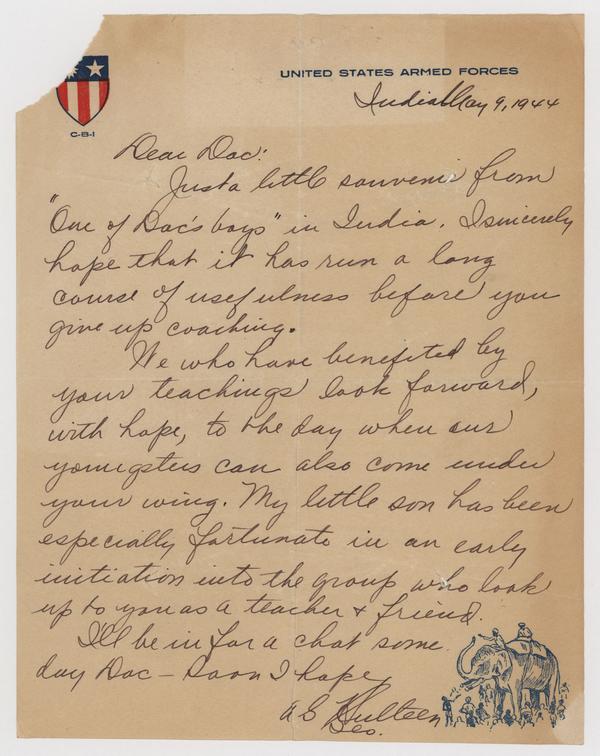 UNITED STATES ARMED FORCES
C-B-I
India May 9, 1944
Dear Doc:
Just a little souvenir from
"One of Doc's boys" in India. I sincerely
hope that it has run a long
course of usefulness before you
give up coaching.
We who have benefited by
your teachings look forward,
with hope, to the day when our
youngsters can also come under
your wing. My little son has been
especially fortunate in an early
initiation into the group who look
up to you as a teacher & friend.
I'll be in for a chat some
day Doc – Soon I hope
Hulteen
Geo.